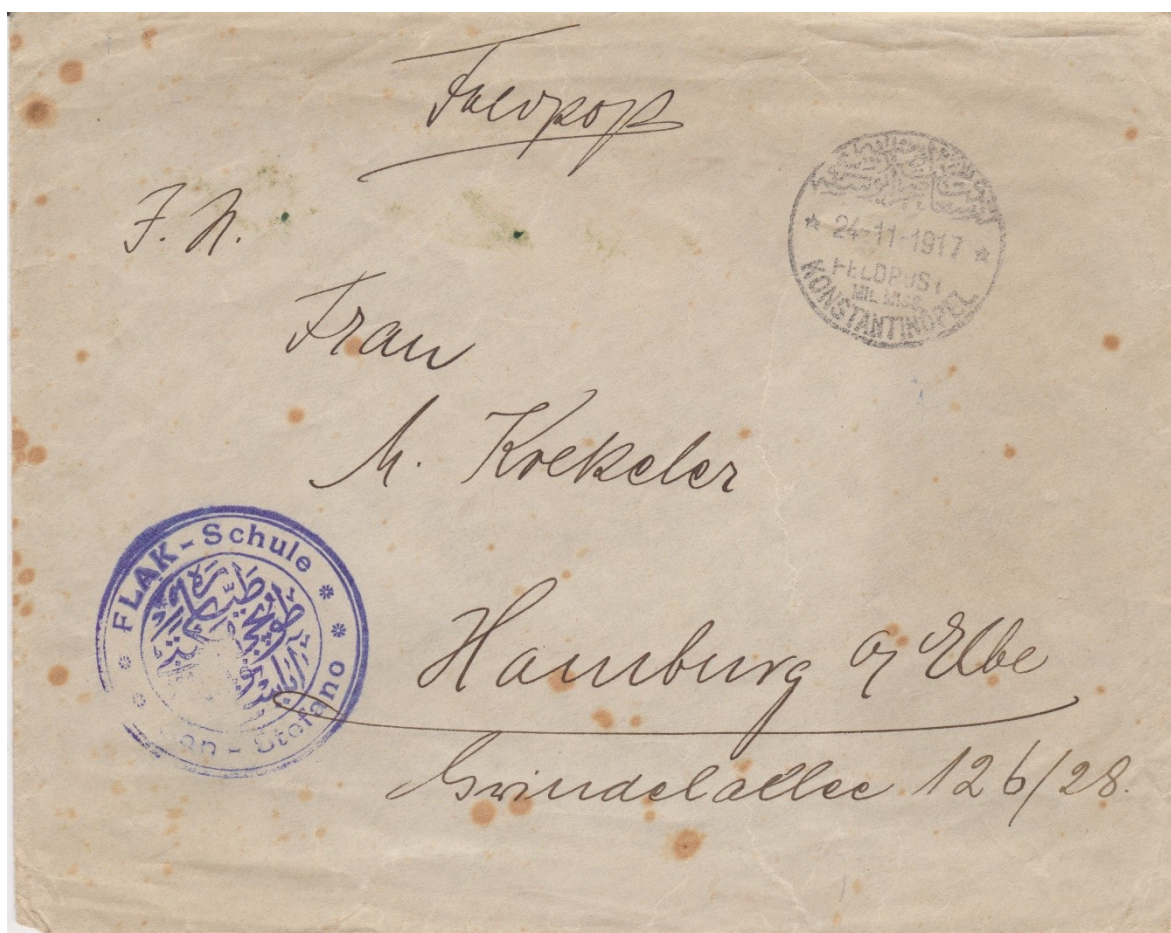 Feldpost
24-11-1917
FELDPOST
MIL. MISS.
KONSTANTINOPEL
F. N.
Frau
M. Krekeler
FLAK-Schule
San-Stefano
Hamburg a/ Elbe
Grindelallee 126/28.